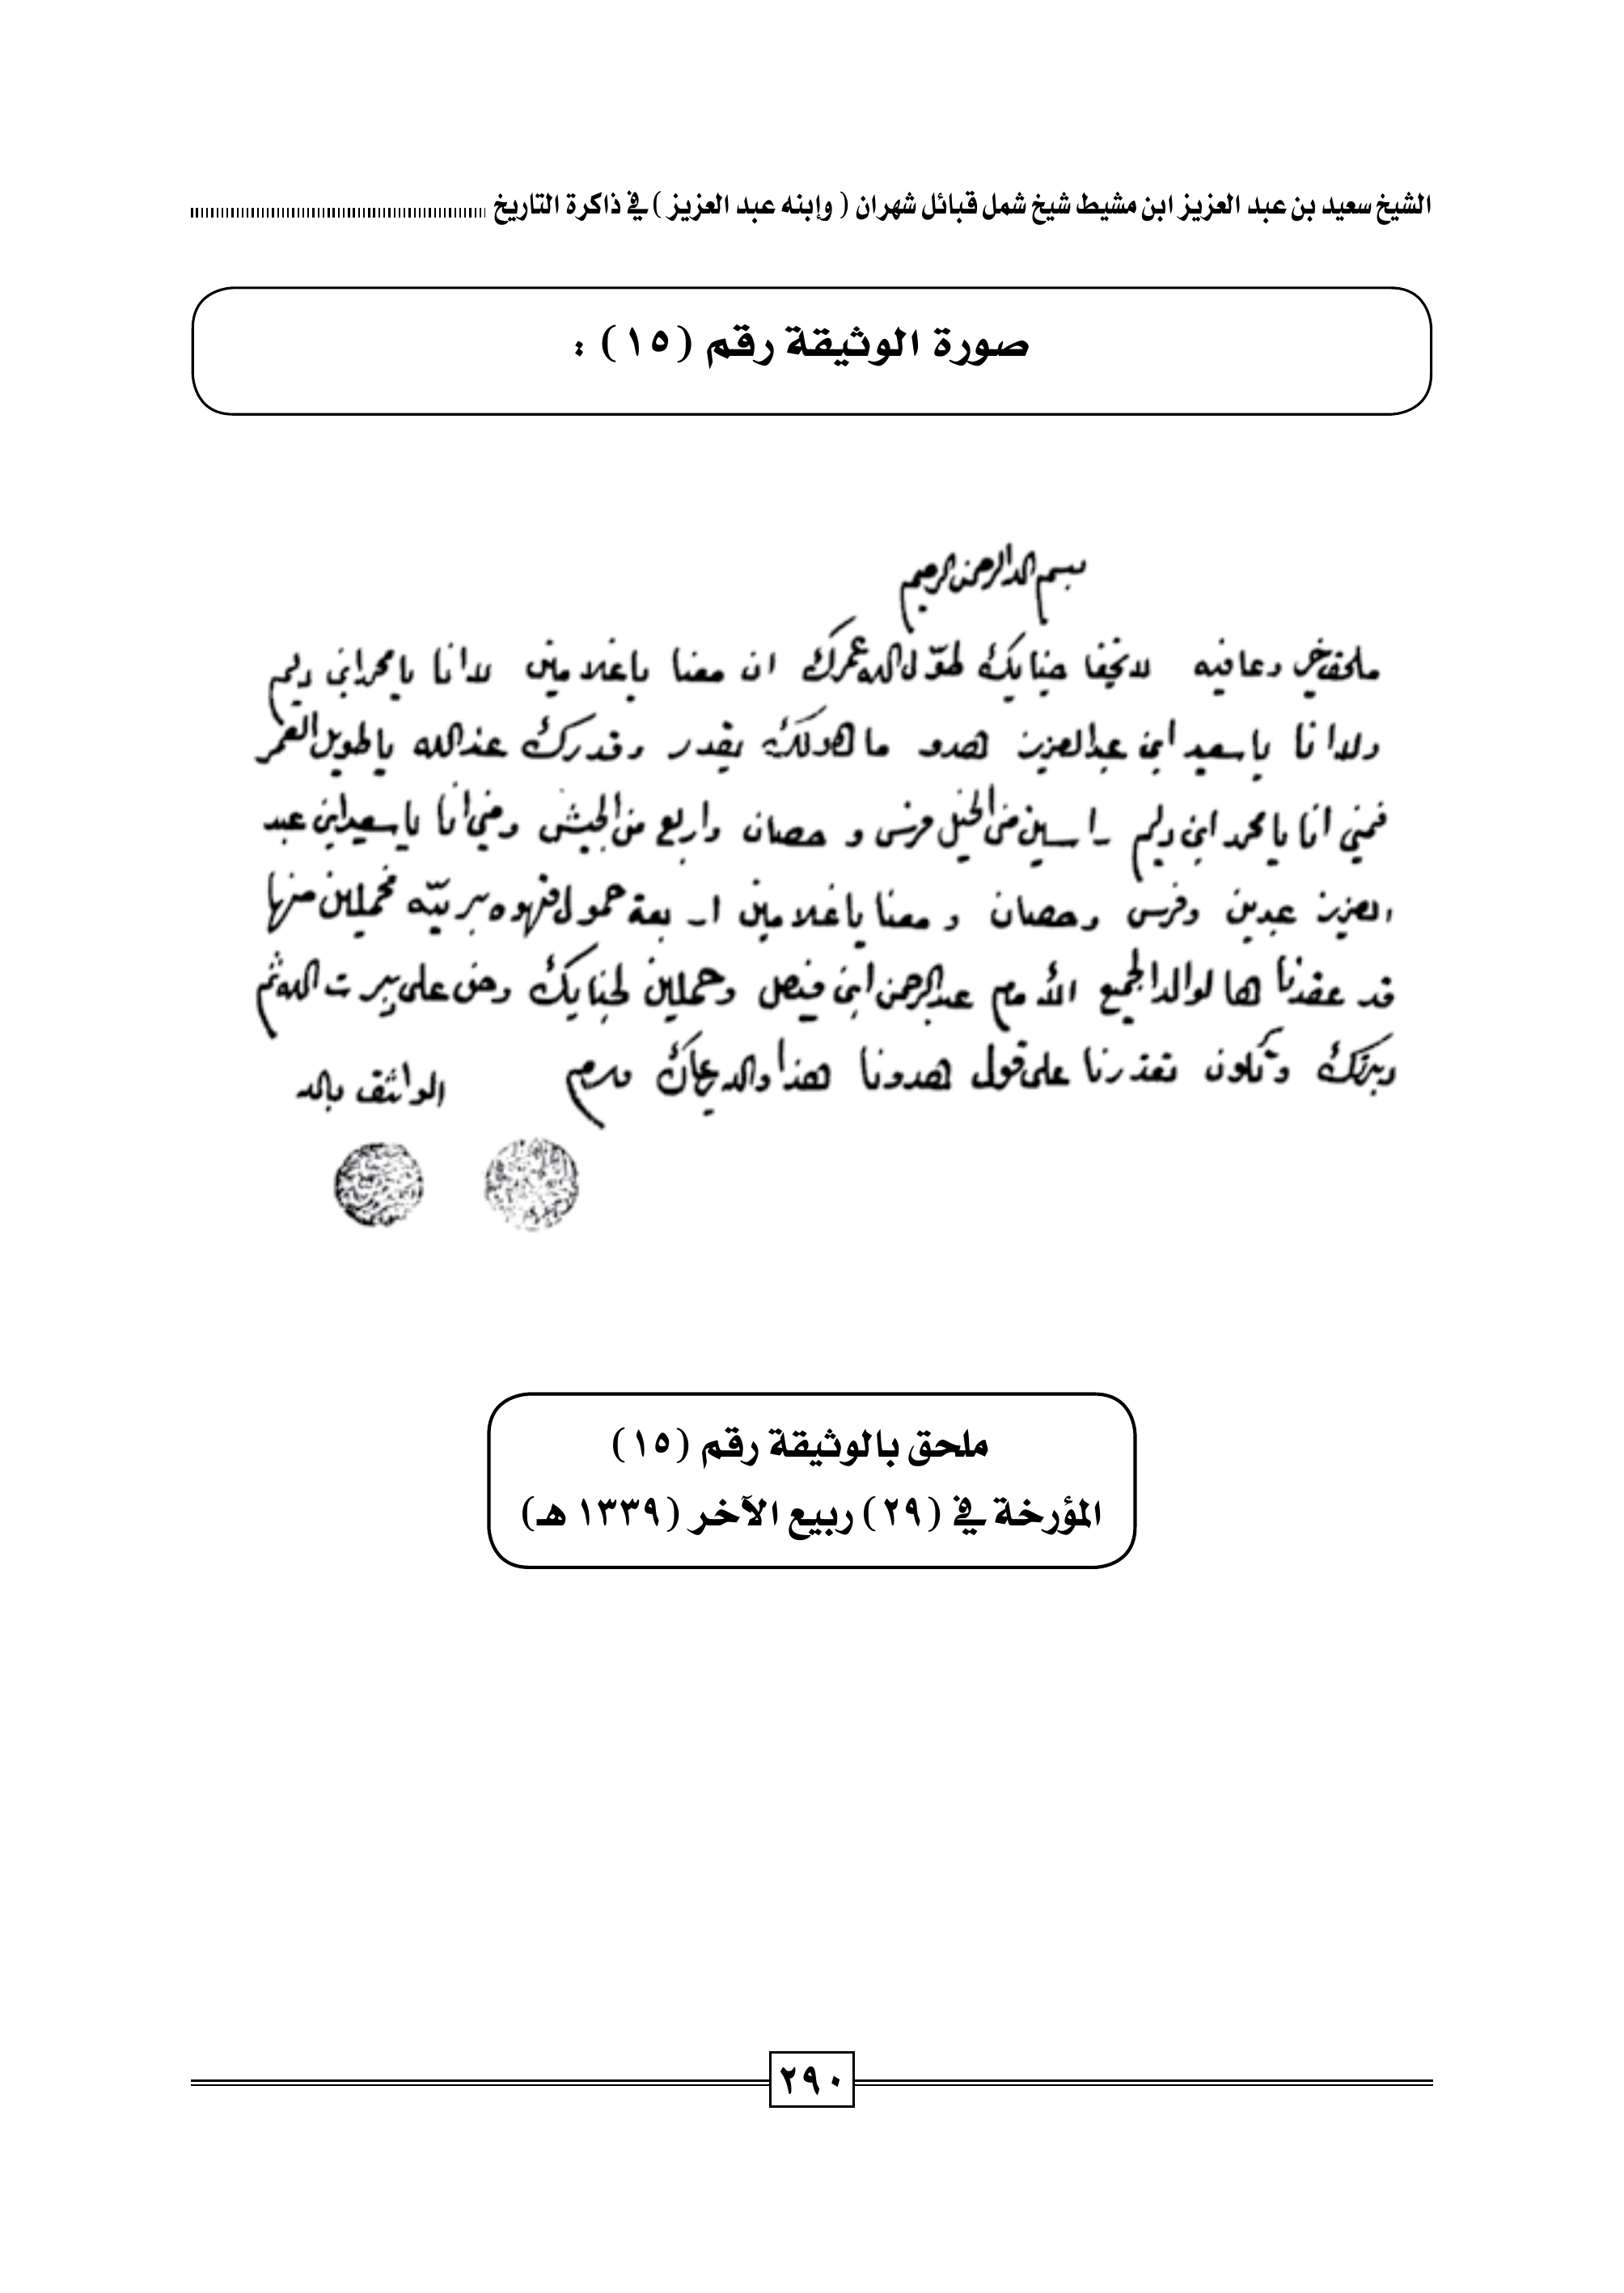 الشيخ سعيد بن عبد العزيز ابن مشيط شيخ شمل قبائل شهران ( وإبنه عبد العزيز ) في ذاكرة التاريخ
صورة الوثيقة رقم (١٥) :
بسم الله الرحمن الرحيم
ملحق خير وعافيه لا يخفا جنابك طوّل الله عمرك ان معنا ياغلامين لا انا يا محمد ابن دليم
ولا انا يا سعيد ابن عبد العزيز هدو ما هولك بقدر وقدرك عند الله يا طويل العمر
فمني انا يا محمد ابن دليم راسين من الخيل فرس و حصان واربع من الجيش ومني انا يا سعيد ابن عبد
العزيز عبدين وفرس وحصان و معنا ياغلامين اربعة حمول قهوه بريّه فحملين منها
قد عقدنا ها لوالد الجميع الامام عبد الرحمن ابن فيصل وحملين لجنابك وحن على الله ثم
وتكون تعذرنا على قول هدونا هذا والله
الواثق بالله
ملحق بالوثيقة رقم (١٥)
المؤرخة في (٢٩) ربيع الآخر (١٣٣٩ هـ)
٢٩٠